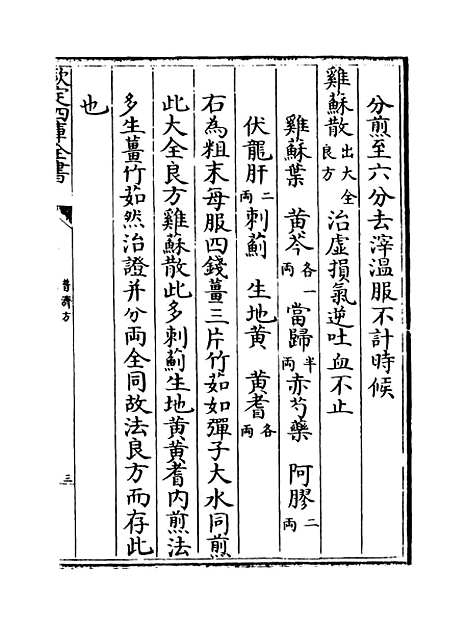 分煎至六分去滓溫服不計時候
雞蘇散出大全良方治虛損氣逆吐血不止
雞蘇葉　黄芩各一兩當歸半兩赤芍藥　阿膠二兩
伏龍肝二兩刺薊　生地黄　黄耆各兩
右為粗末每服四錢薑三片竹茹如彈子大水同煎
此大全良方雞蘇散此多刺薊生地黄黄耆内煎法
多生薑竹茹然治證并分兩全同故法良方而存此
也
欽定四庫全書
普濟方
三